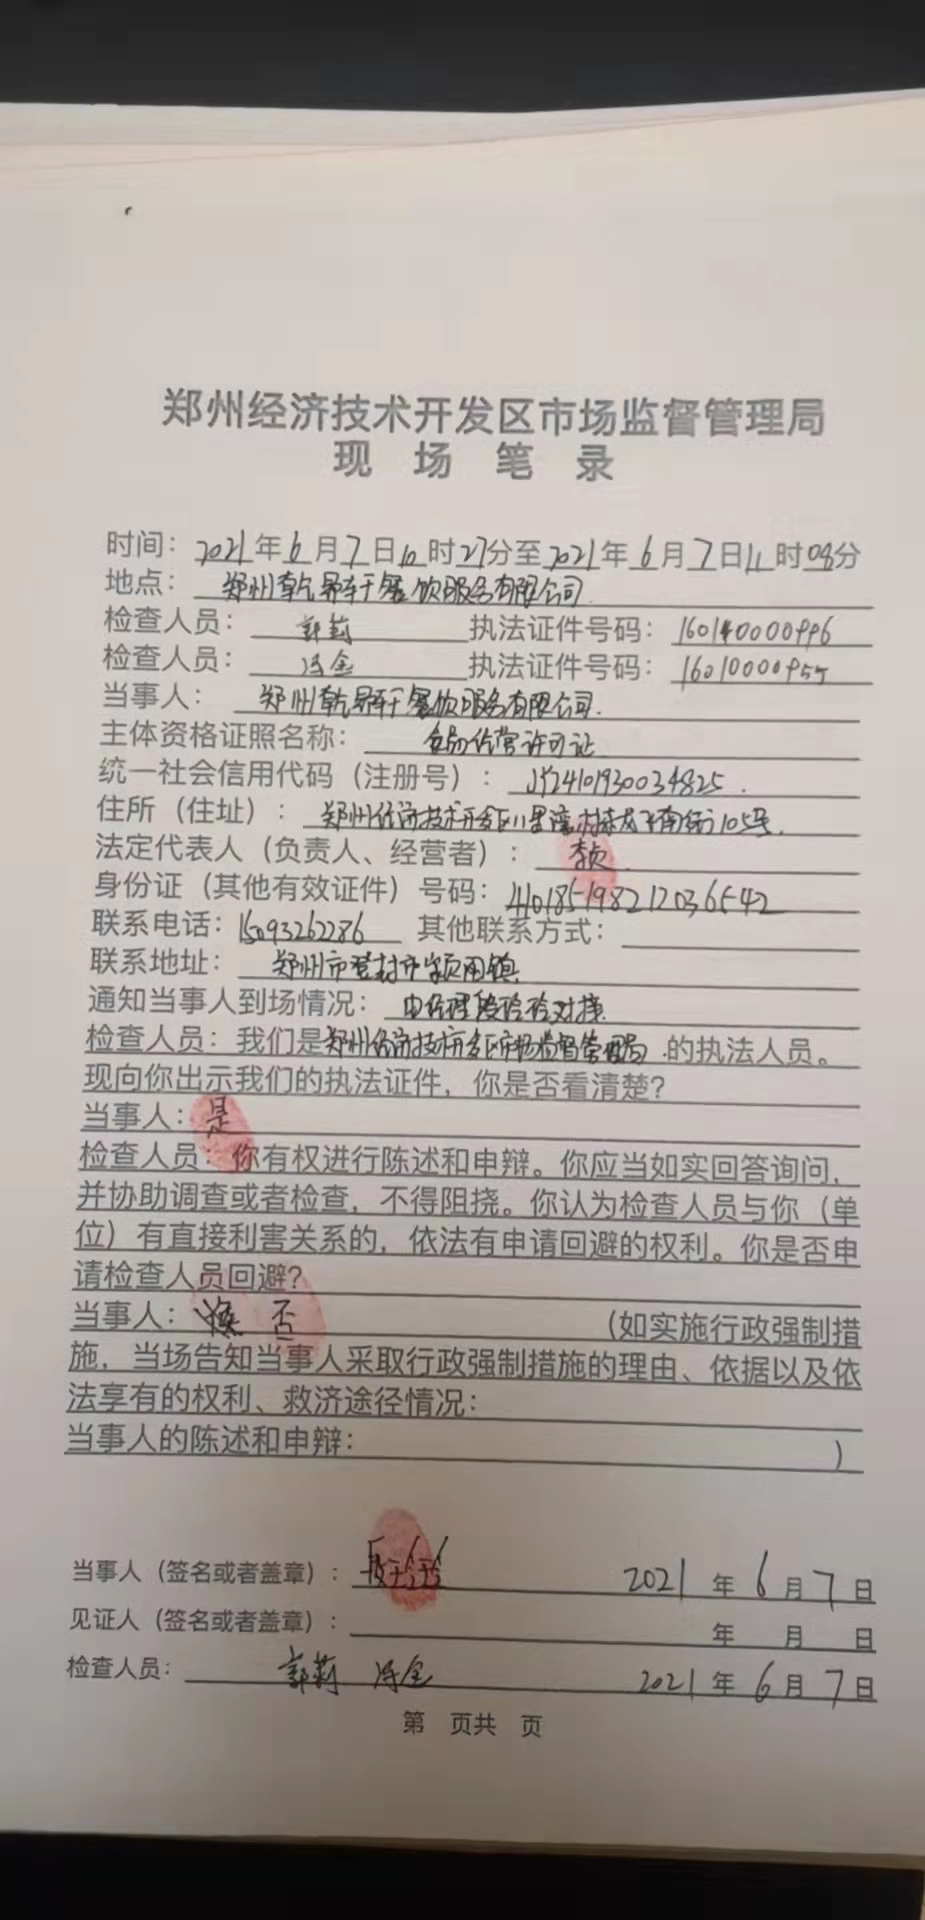 郑州经济技术开发区市场监督管理局
现 场 笔 录
时间：2021年6月7日10时27分至2021年6月7日11时08分
地点：郑州乾昴轩餐饮服务有限公司
检查人员：郭莉 执法证件号码：160140000996
检查人员：冯金 执法证件号码：16010000955
当事人：郑州乾昴轩餐饮服务有限公司.
主体资格证照名称：食品经营许可证
统一社会信用代码（注册号）：JY24101930034825.
住所（住址）：郑州经济技术开发区八里湾村东龙子南街105号.
法定代表人（负责人、经营者）：李贞
身份证（其他有效证件）号码：410185198212036542
联系电话：15093262286 其他联系方式：
联系地址：郑州市登封市颍阳镇
通知当事人到场情况：由经理段玲玲对接
检查人员：我们是郑州经济技术开发区市场监督管理局.的执法人员。
现向你出示我们的执法证件，你是否看清楚？
当事人：是
检查人员：你有权进行陈述和申辩。你应当如实回答询问，
并协助调查或者检查，不得阻挠。你认为检查人员与你（单
位）有直接利害关系的，依法有申请回避的权利。你是否申
请检查人员回避？
当事人： 否 （如实施行政强制措
施，当场告知当事人采取行政强制措施的理由、依据以及依
法享有的权利、救济途径情况：
当事人的陈述和申辩： ）
当事人（签名或者盖章）：段玲玲 2021年6月7日
见证人（签名或者盖章）： 年 月 日
检查人员：郭莉 冯金 2021年6月7日
第 页共 页